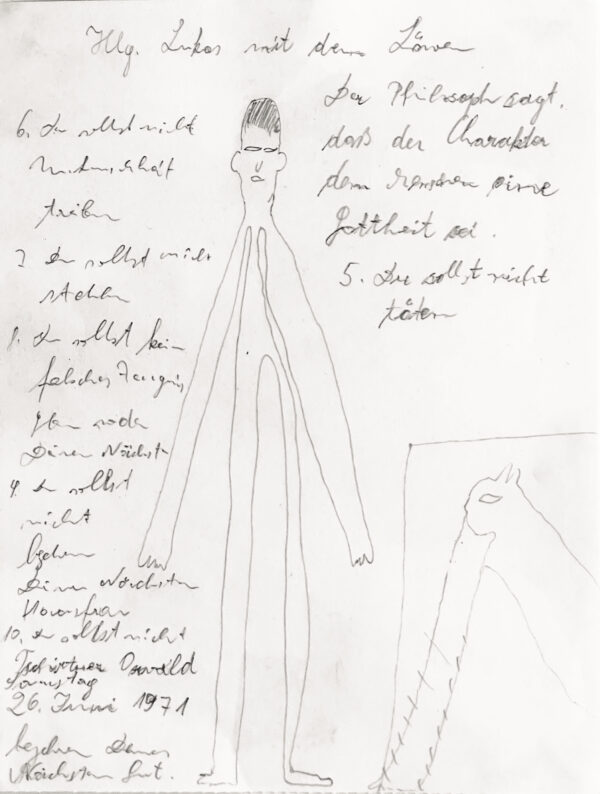 Hlg. Lukas mit dem Löwen
Der Philosoph sagt,
daß der Charakter
dem Menschen eine
Gottheit sei.
5. Du sollst nicht
töten
6. Du sollst nicht
Unkeuschheit
treiben
7. Du sollst nicht
stehlen
8. Du sollst kein
falsches Zeugnis
geben
Deinen Nächsten
9. Du sollst
nicht
begehren
Deines Nächsten
Hausfrau
10. Du sollst nicht
Tschirtner Oswald
Samstag
26. Juni 1971
begehren Deines
Nächsten Gut.